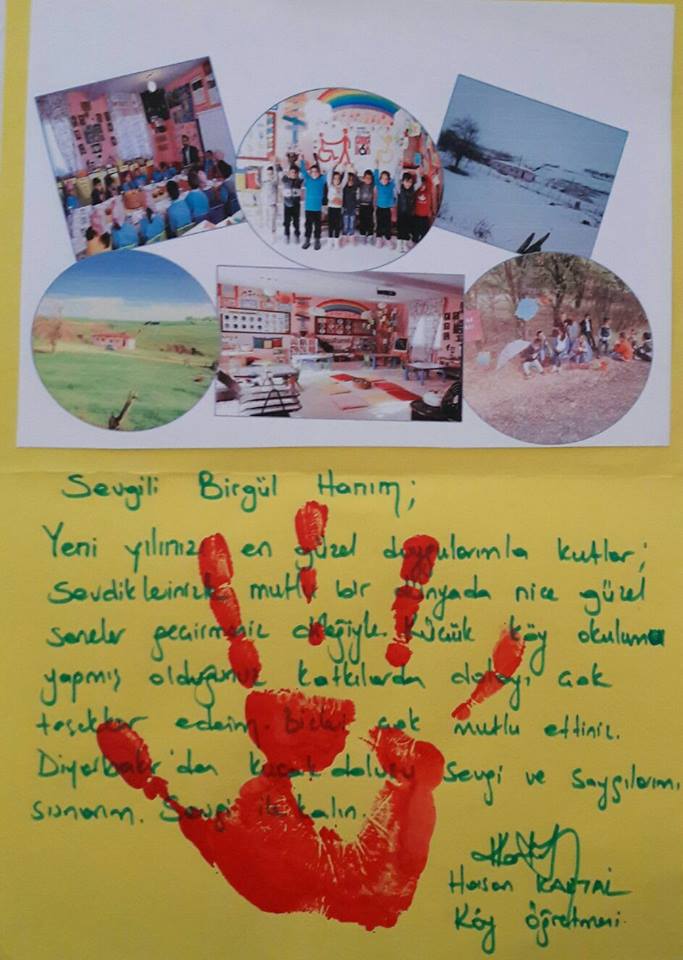 Sevgili Birgül Hanım;
Yeni yılınızı en güzel duygularımla kutlar;
Sevdiklerinizle mutlu bir dünyada nice güzel
seneler geçirmeniz dileğiyle. Küçük köy okuluma
yapmış olduğunuz katkılardan dolayı çok
teşekkür ederim. Bizleri çok mutlu ettiniz.
Diyarbakır'dan kucak dolusu sevgi ve saygılarımı
sunarım. Sevgi ile kalın.
Hasan
Köy öğretmeni